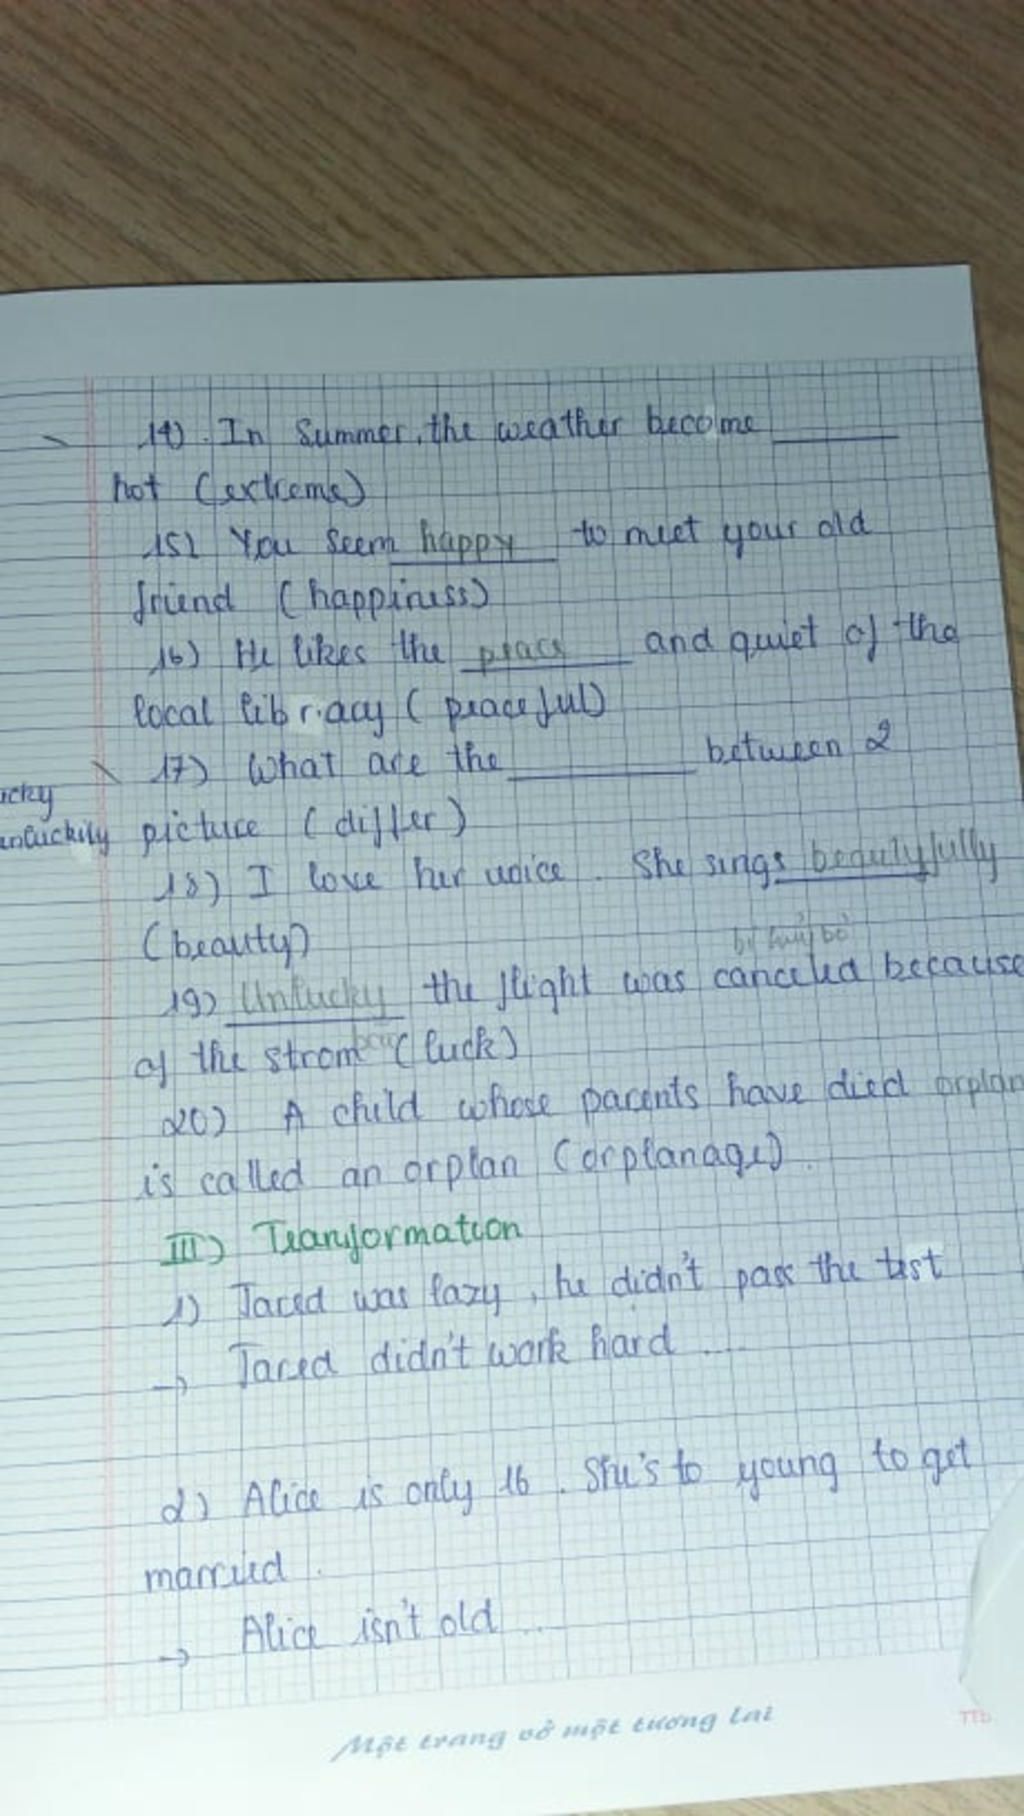 14) In Summer, the weather become ____
hot (extreme)
15) You seem happy to meet your old
friend (happiness)
16) He likes the peace and quiet of the
local library (peaceful)
17) What are the ____ between 2
ucky
unluckily picture (differ)
18) I love her voice. She sings beautyfully
(beauty)
bị huỷ bỏ
19) Unlucky the flight was canceled because
of the strom (luck)
20) A child whose parents have died orplan
is called an orplan (orplanage).
III) Tranformation
1) Jared was lazy, he didn't pass the test
→ Jared didn't work hard ...
2) Alice is only 16. She's to young to get
married.
→ Alice isn't old ...
Một trang vở một tương lai